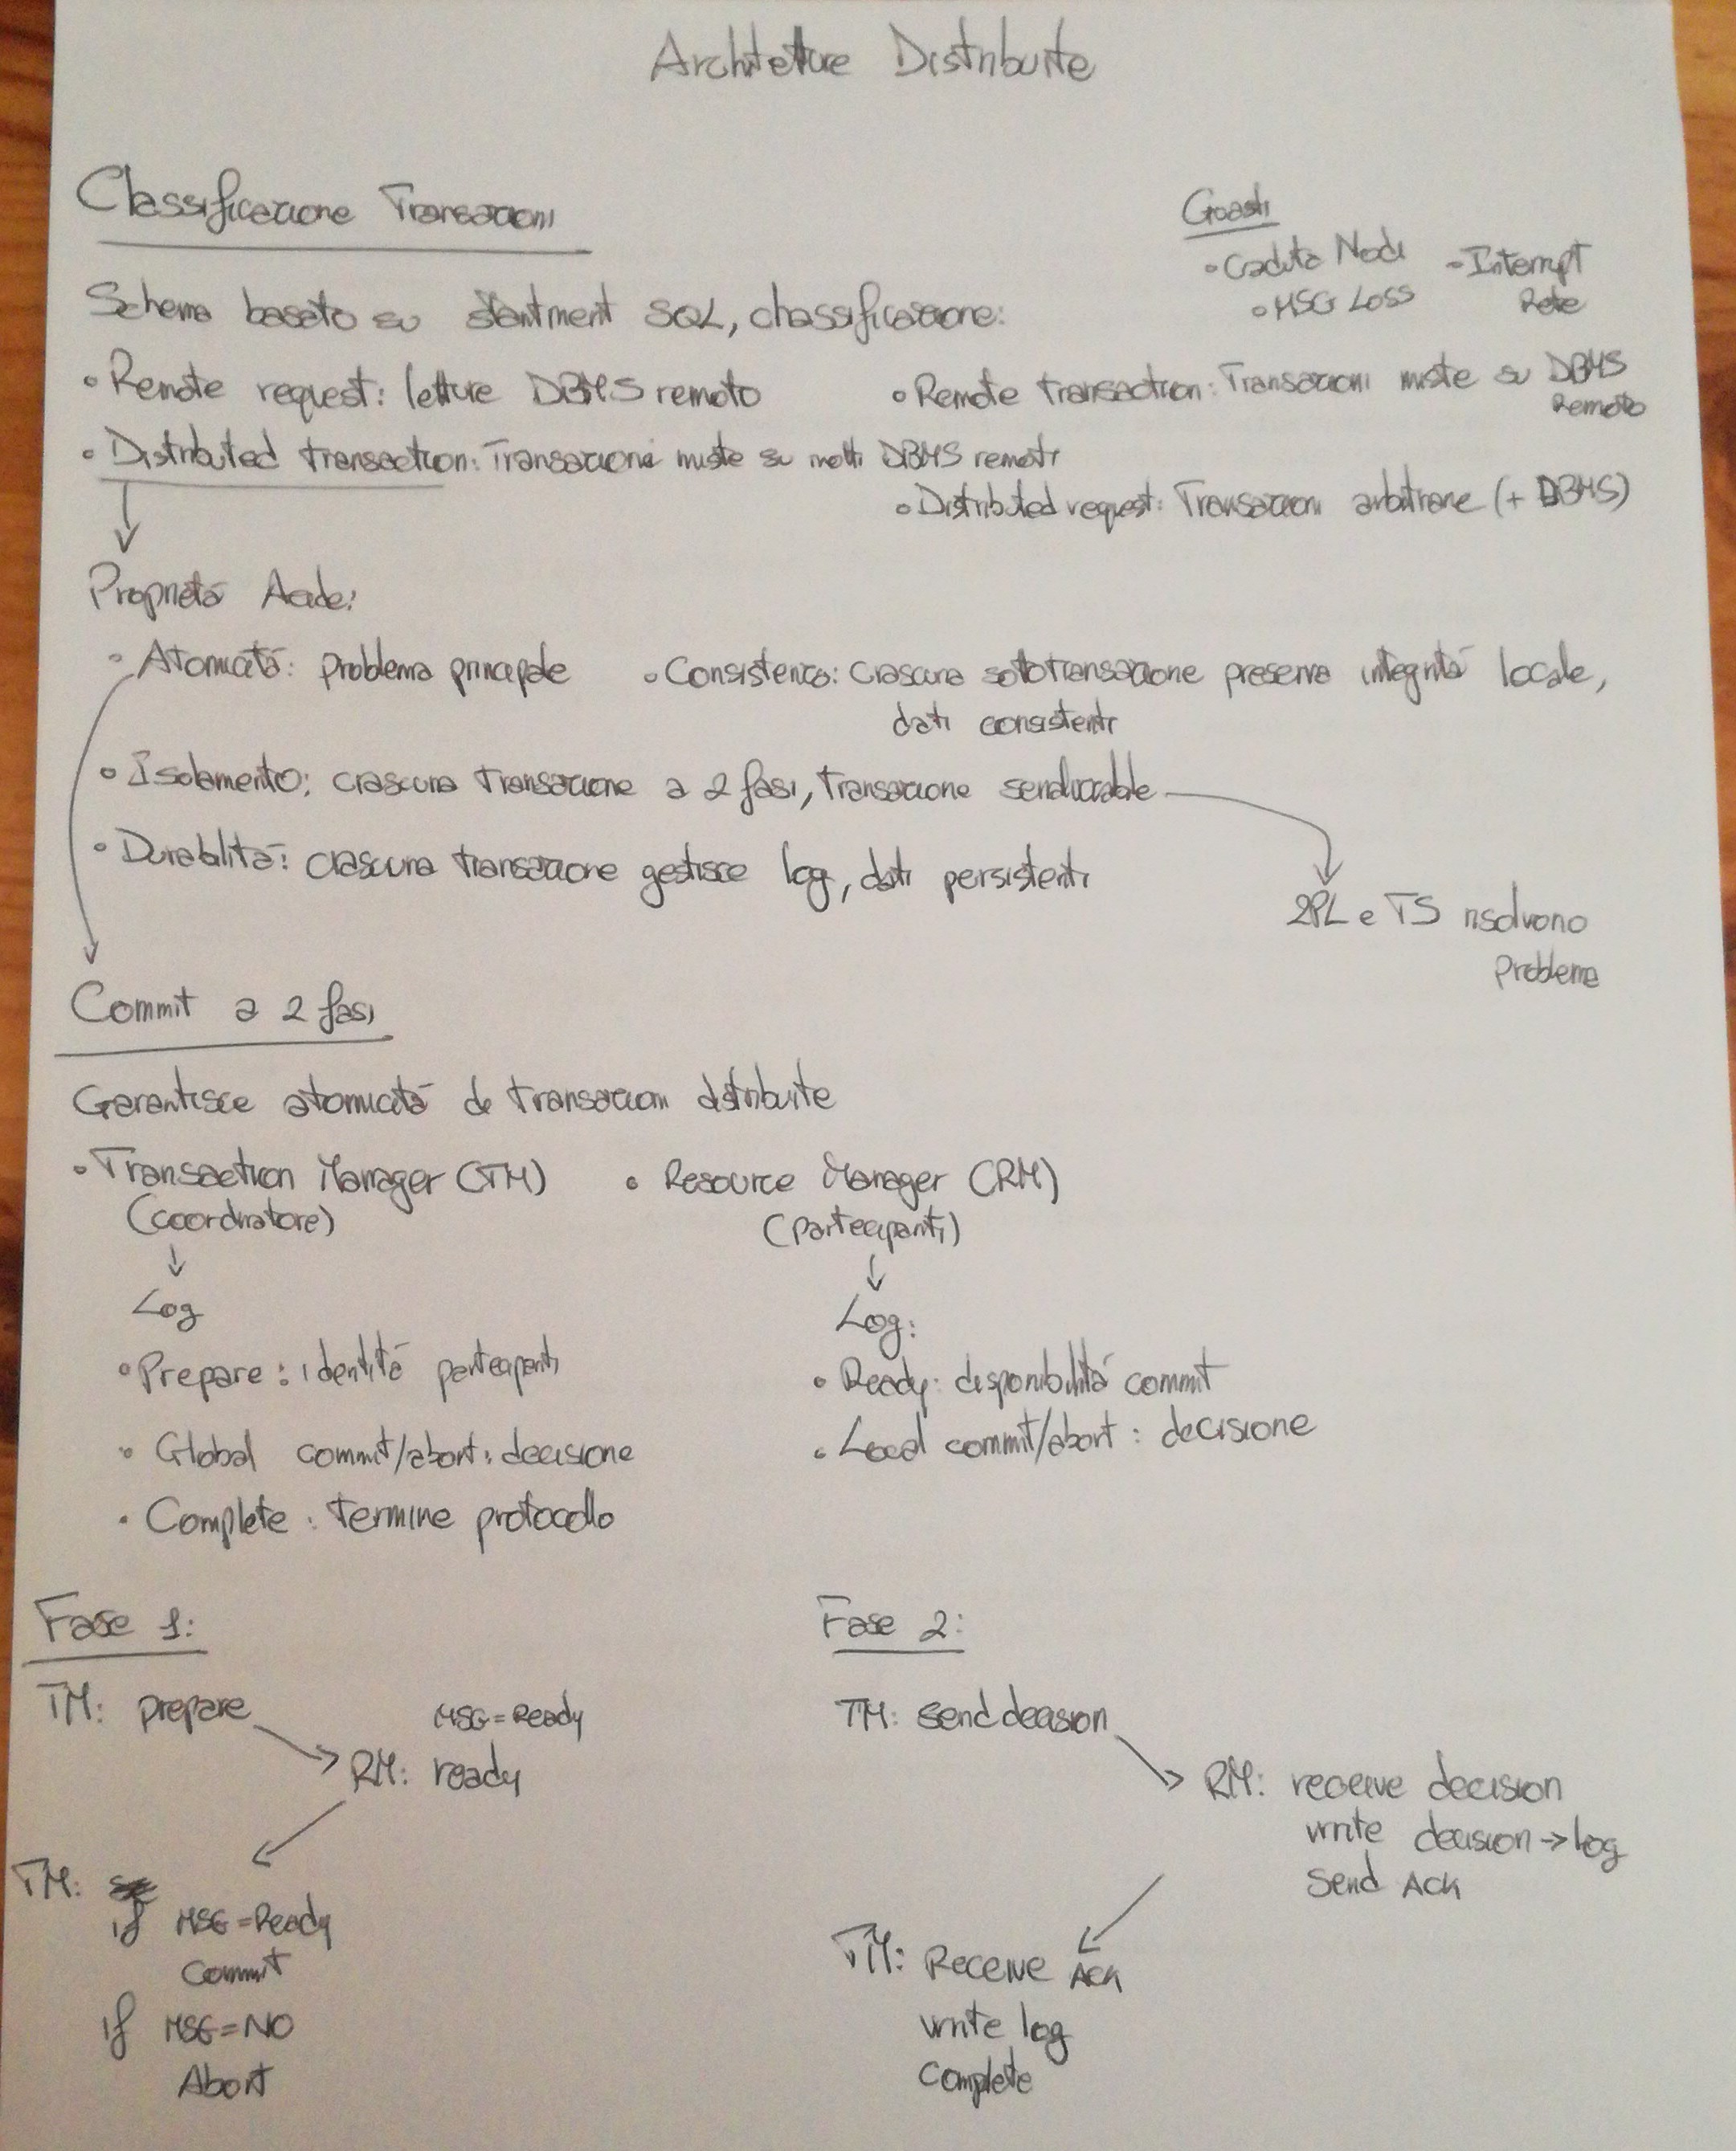 Architetture Distribuite
Classificazione Transazioni
Guasti
• Caduta Nodi - Interrupt
• MSG Loss Rete
Schema basato su statment SQL, classificazione:
• Remote request: letture DBMS remoto
• Remote transaction: Transazioni miste su DBMS
Remoto
• Distributed transaction: Transazioni miste su molti DBMS remoti
• Distributed request: Transazioni arbitrarie (+ DBMS)
Proprietà Acide:
• Atomicità: problema principale
• Consistenza: ciascuna sottotransazione preserva integrità locale,
dati consistenti
• Isolamento: ciascuna transazione a 2 fasi, transazione serializzabile
• Durabilità: ciascuna transazione gestisce log, dati persistenti
2PL e TS risolvono
problema
Commit a 2 fasi
Garantisce atomicità di transazioni distribuite
• Transaction Manager (TM)
(coordinatore)
↓
Log
• Prepare: identità partecipanti
• Global commit/abort: decisione
• Complete: termine protocollo
• Resource Manager (RM)
(partecipanti)
↓
Log:
• Ready: disponibilità commit
• Local commit/abort: decisione
Fase 1:
TM: prepare
MSG=Ready
RM: ready
TM:
if MSG=Ready
Commit
if MSG=NO
Abort
Fase 2:
TM: send decision
RM: receive decision
write decision → log
Send Ack
TM: Receive Ack
write log
Complete